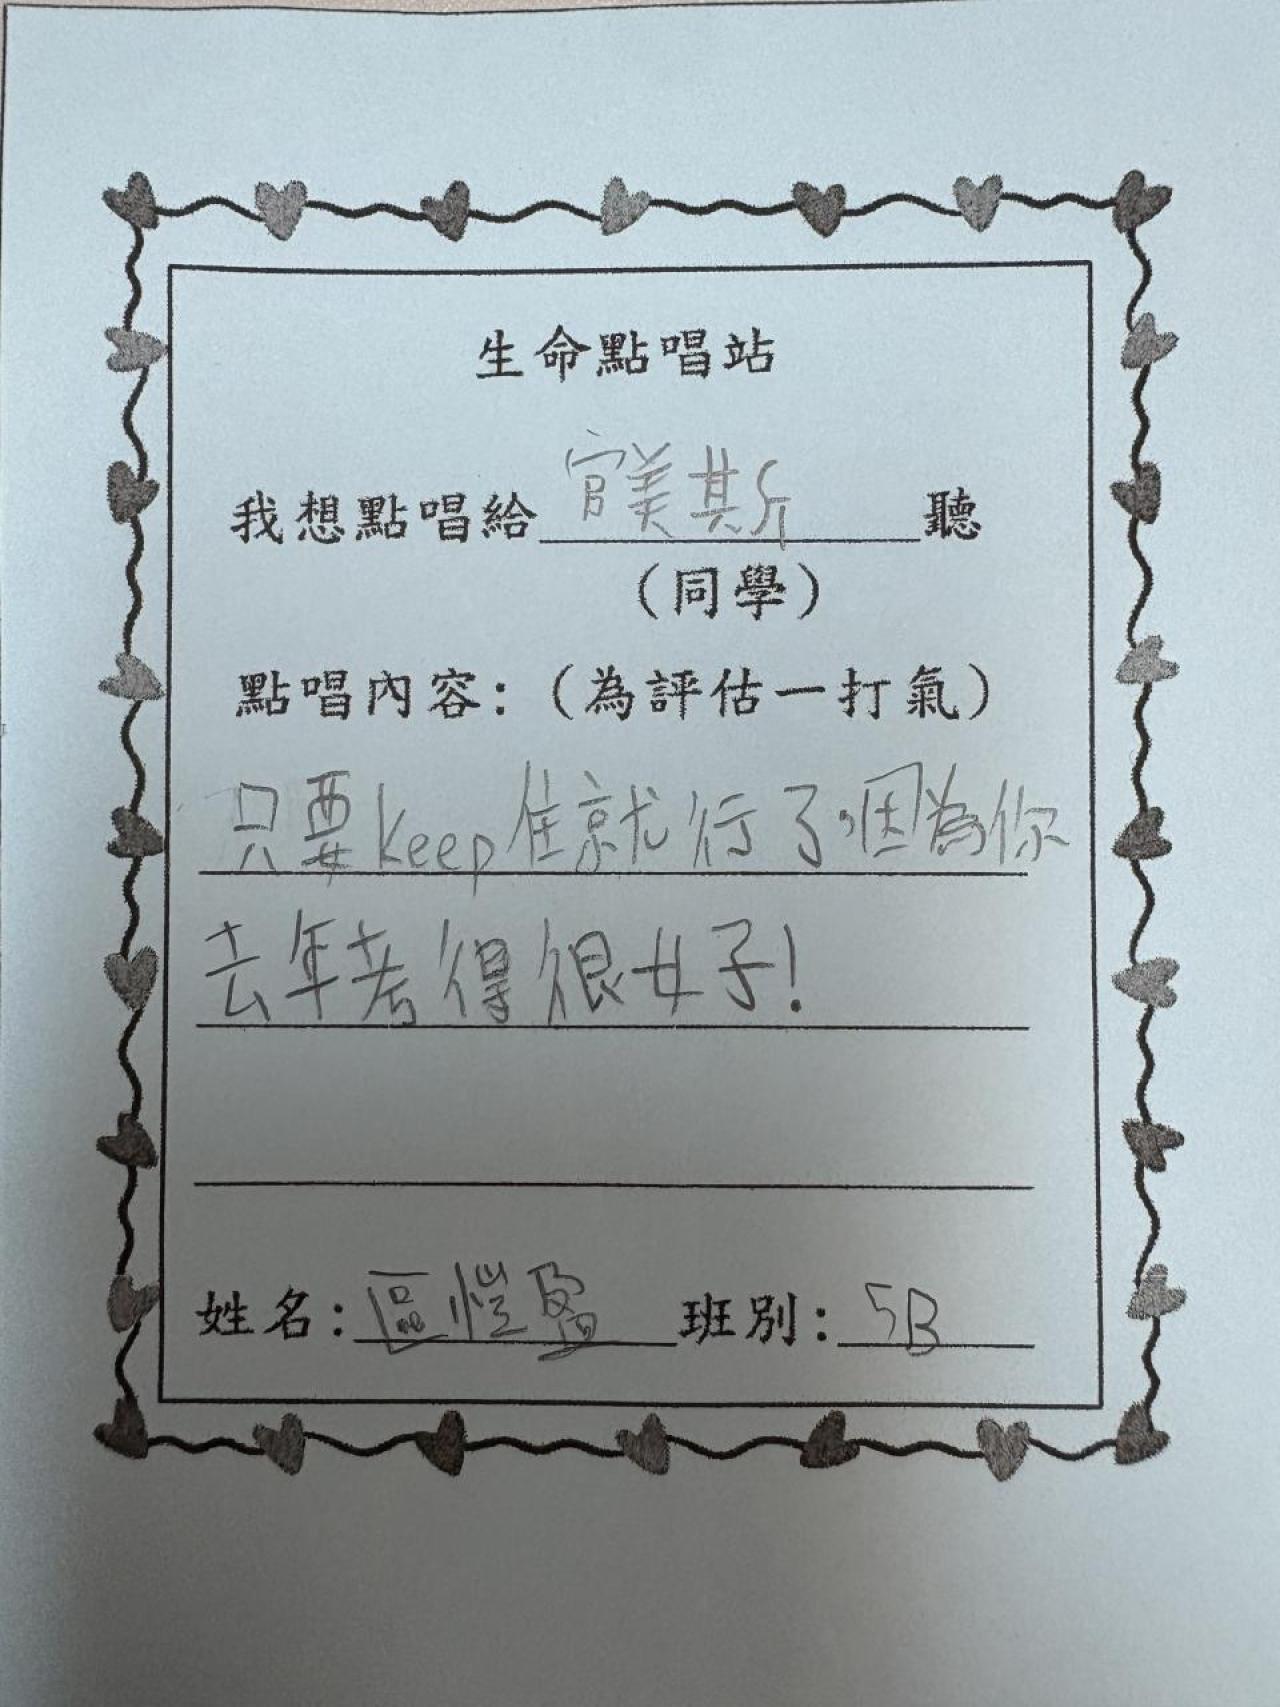 生命點唱站
我想點唱給官美斯聽
(同學)
點唱內容:(為評估一打氣)
只要keep住就行了,因為你
去年考得很好!
姓名:區愷盈 班別:5B